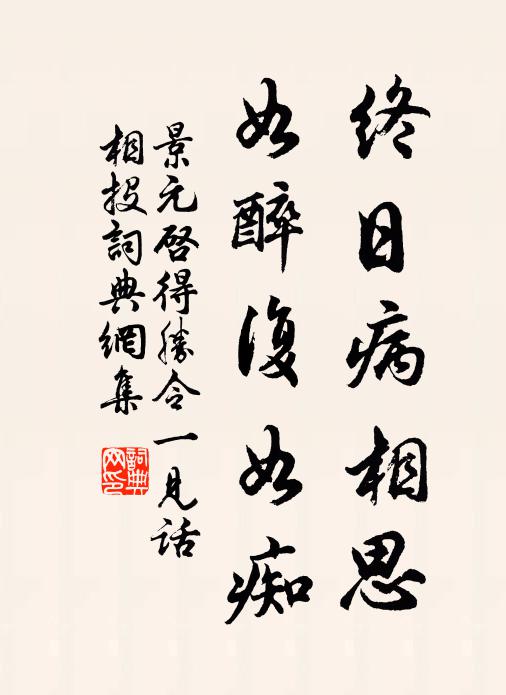 终日病相思
如醉復如痴
景元啓得勝令一見話
相投詞典網集
詞典
网印